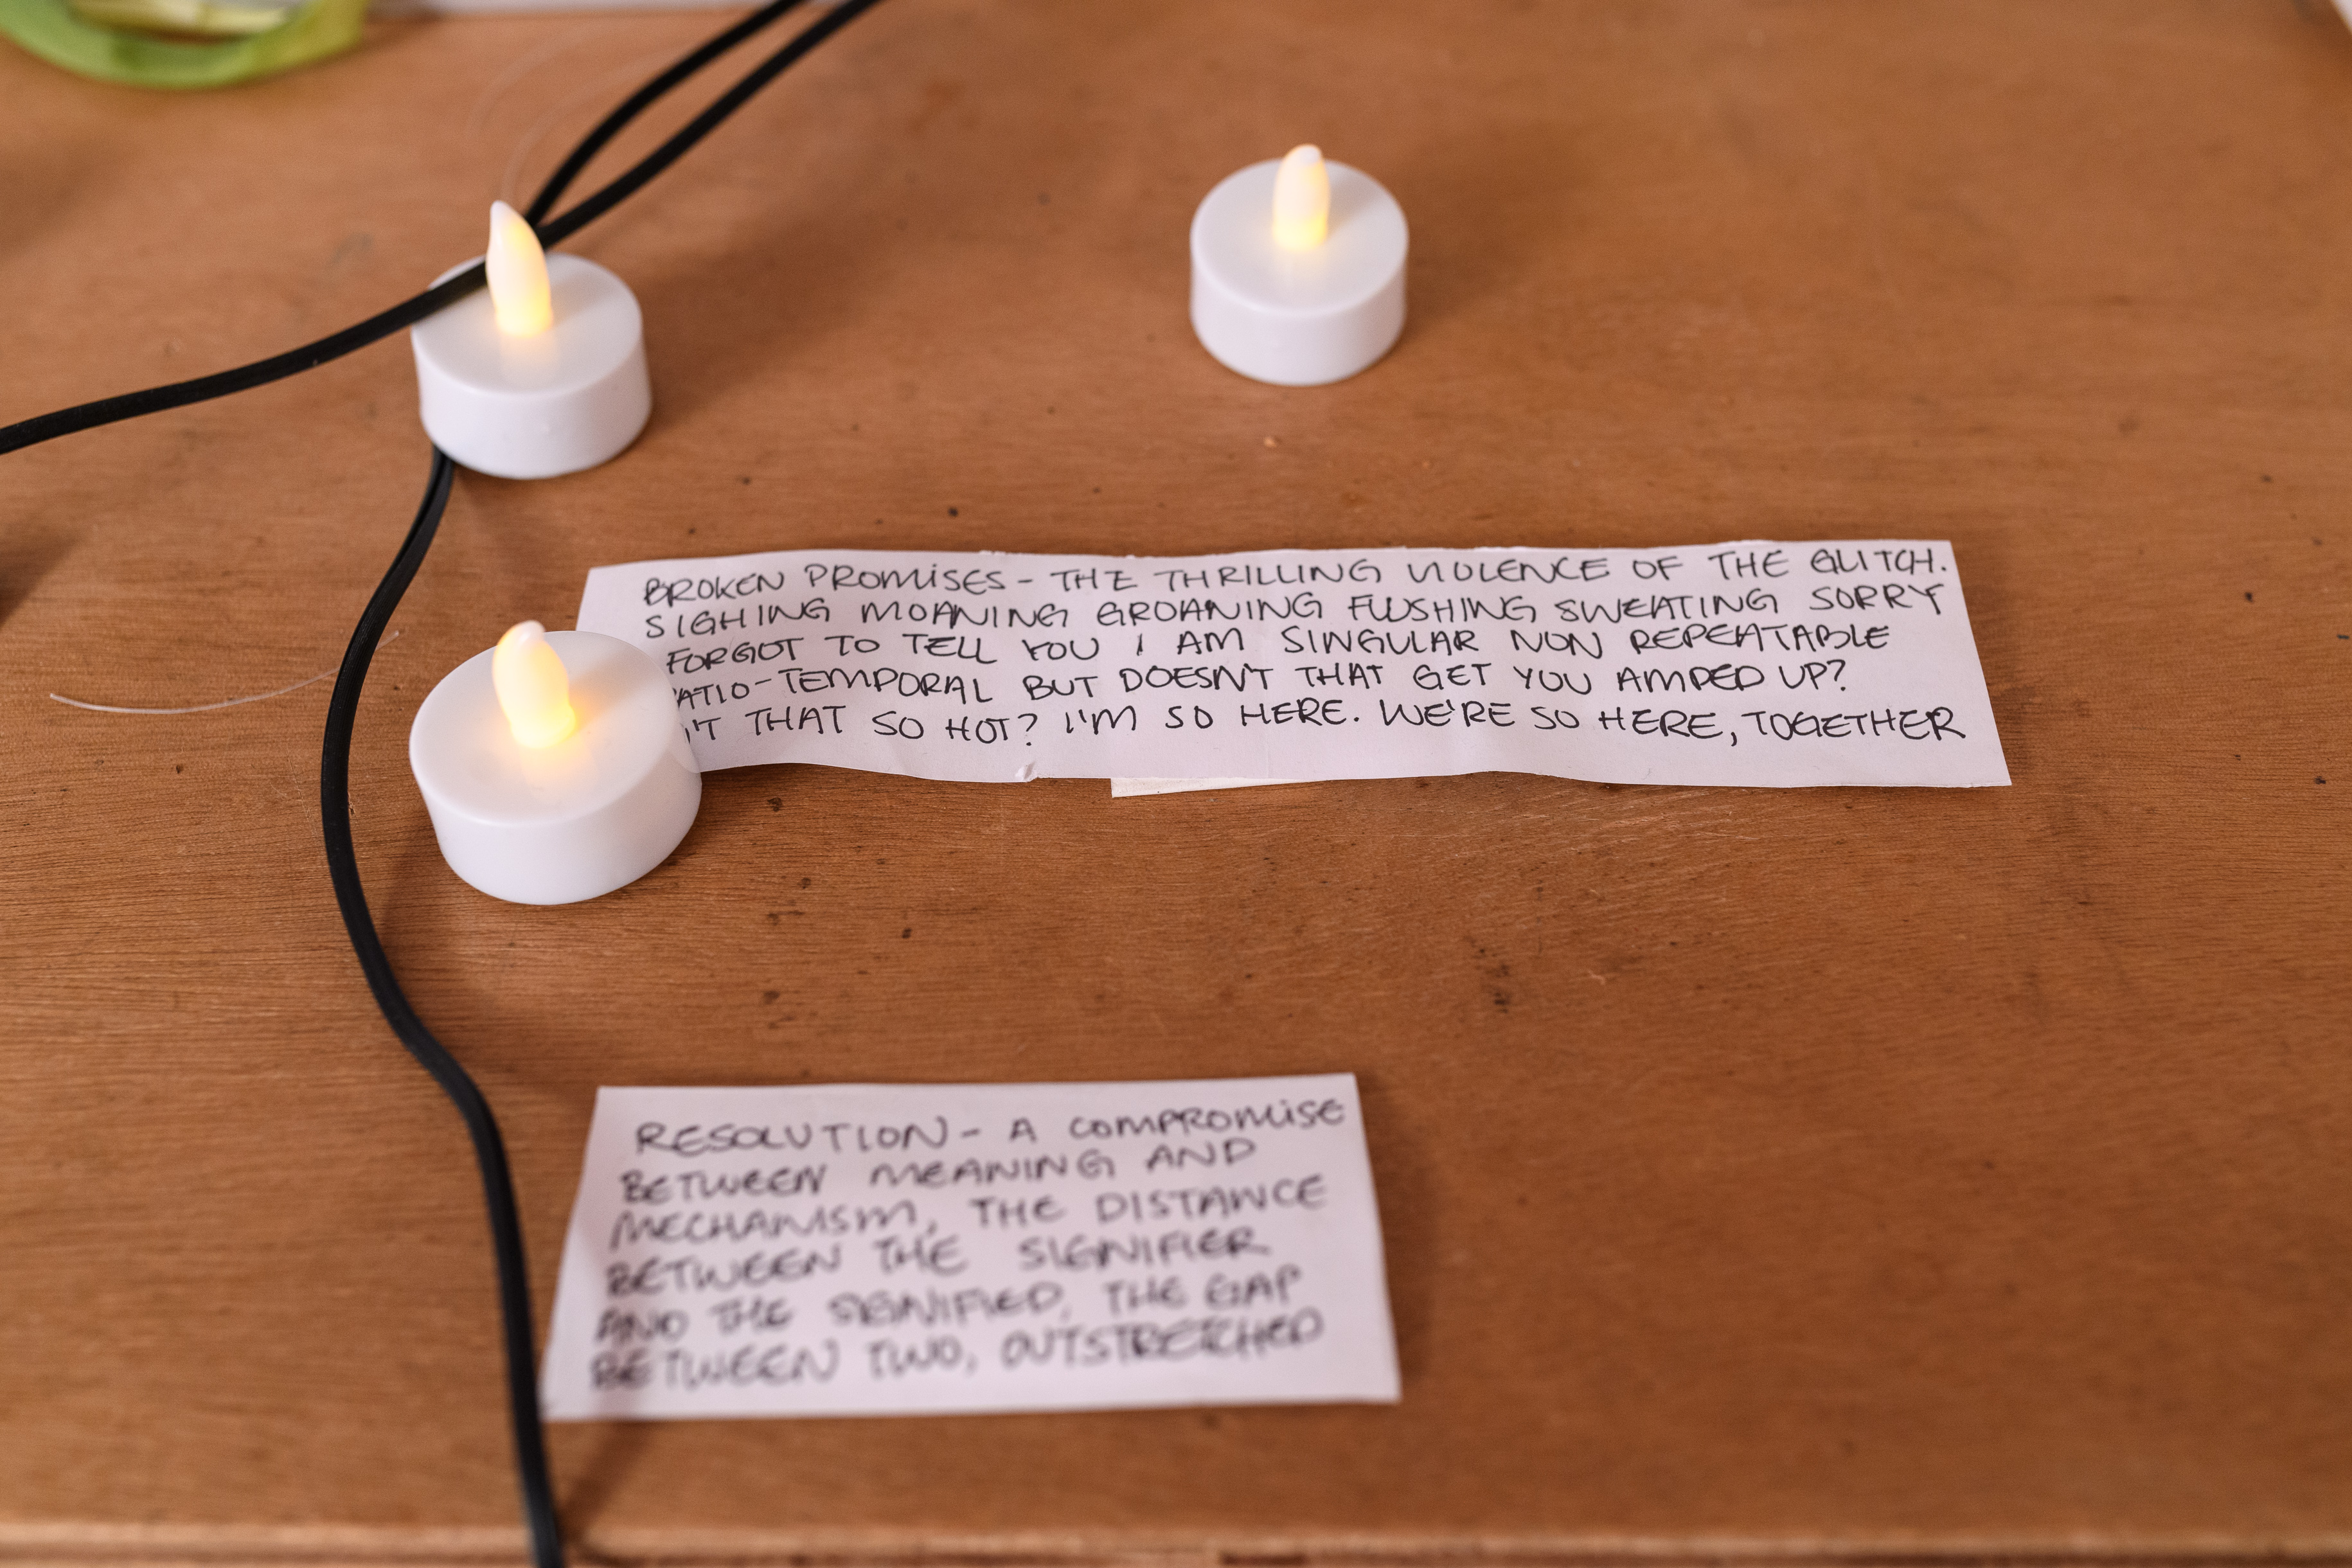 BROKEN PROMISES - THE THRILLING VIOLENCE OF THE GLITCH.
SIGHING MOANING GROANING FLUSHING SWEATING SORRY
FORGOT TO TELL YOU I AM SINGULAR NON REPEATABLE
ATIO-TEMPORAL BUT DOESN'T THAT GET YOU AMPED UP?
N'T THAT SO HOT? I'M SO HERE. WE'RE SO HERE, TOGETHER
RESOLUTION - A COMPROMISE
BETWEEN MEANING AND
MECHANISM, THE DISTANCE
BETWEEN THE SIGNIFIER
AND THE SIGNIFIED, THE GAP
BETWEEN TWO, OUTSTRETCHED